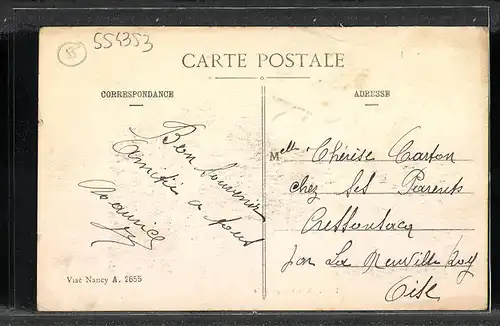 15
554353
CARTE POSTALE
CORRESPONDANCE
Bon Souvenir
Amitié a tous
Maurice
Visé Nancy A. 2655
ADRESSE
Melle Thérèse Carton
chez ses Parents
Cressonsacq
par La Neuville Roy
Oise